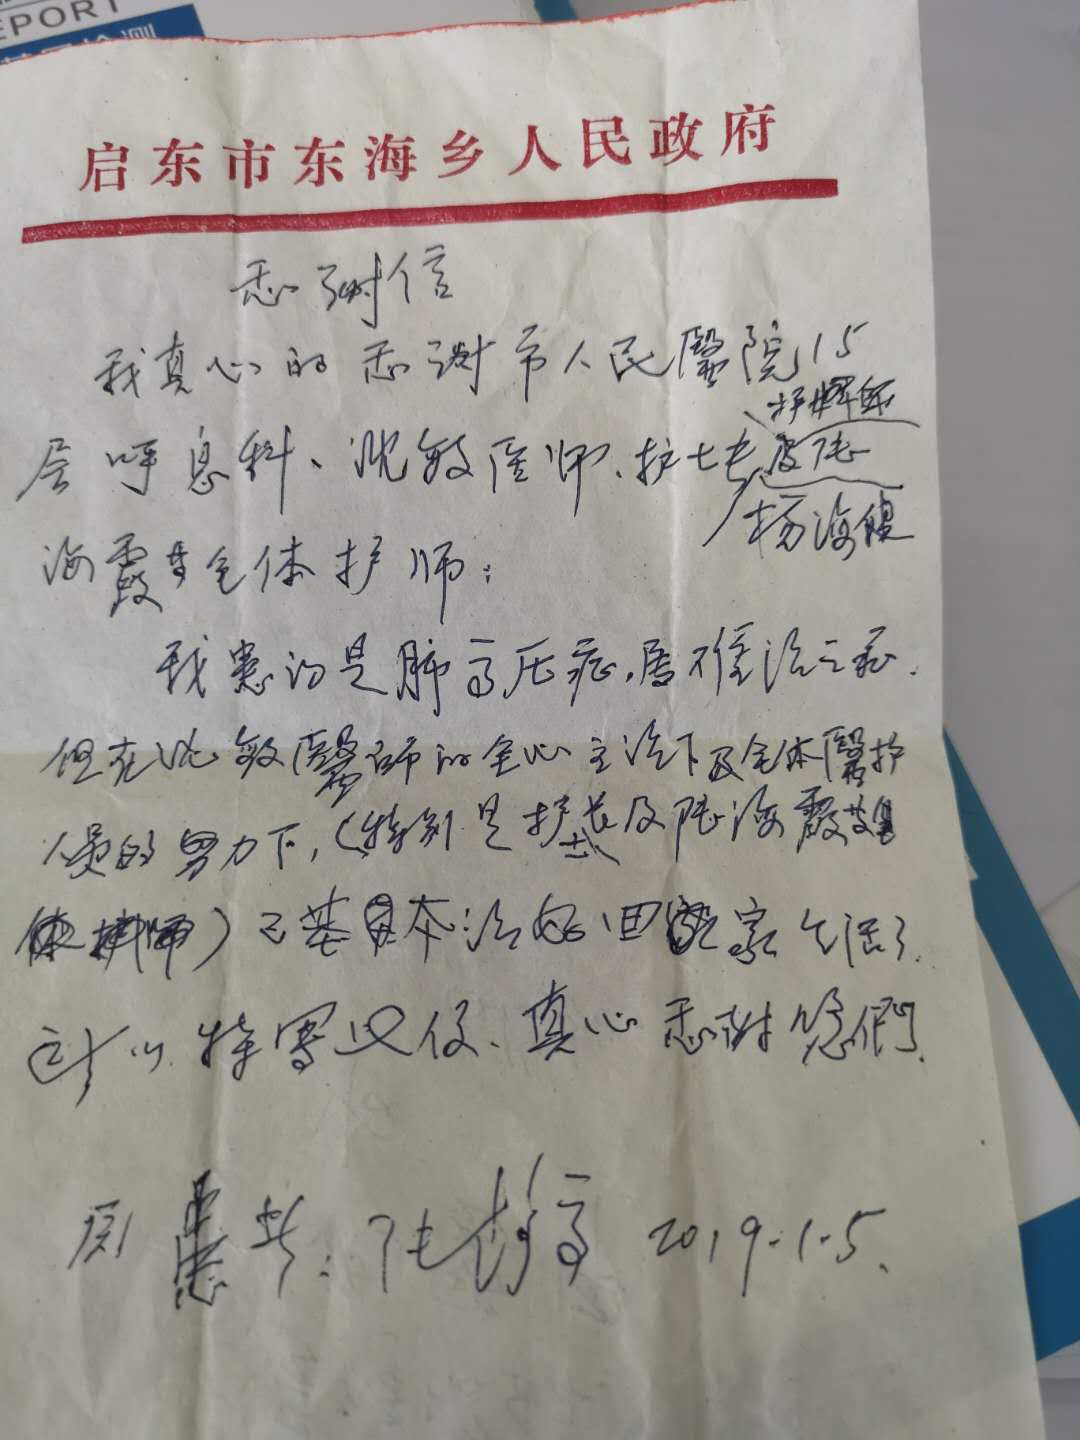 EPORT
启东市东海乡人民政府
感谢信
我真心的感谢市人民醫院15
层呼息科、沈敏医师、护士长
杨海健
及陆
海霞等全体护师:
我患的是肺高压症,居难治之症.
但在沈敏醫师的全心主治下及全体醫护
人员的努力下,(特别是护士长及陆海霞
)已基本治好回家生活了.
所以特寫此信、真心感谢您們.
原患者: 张 高 2019.1.5.